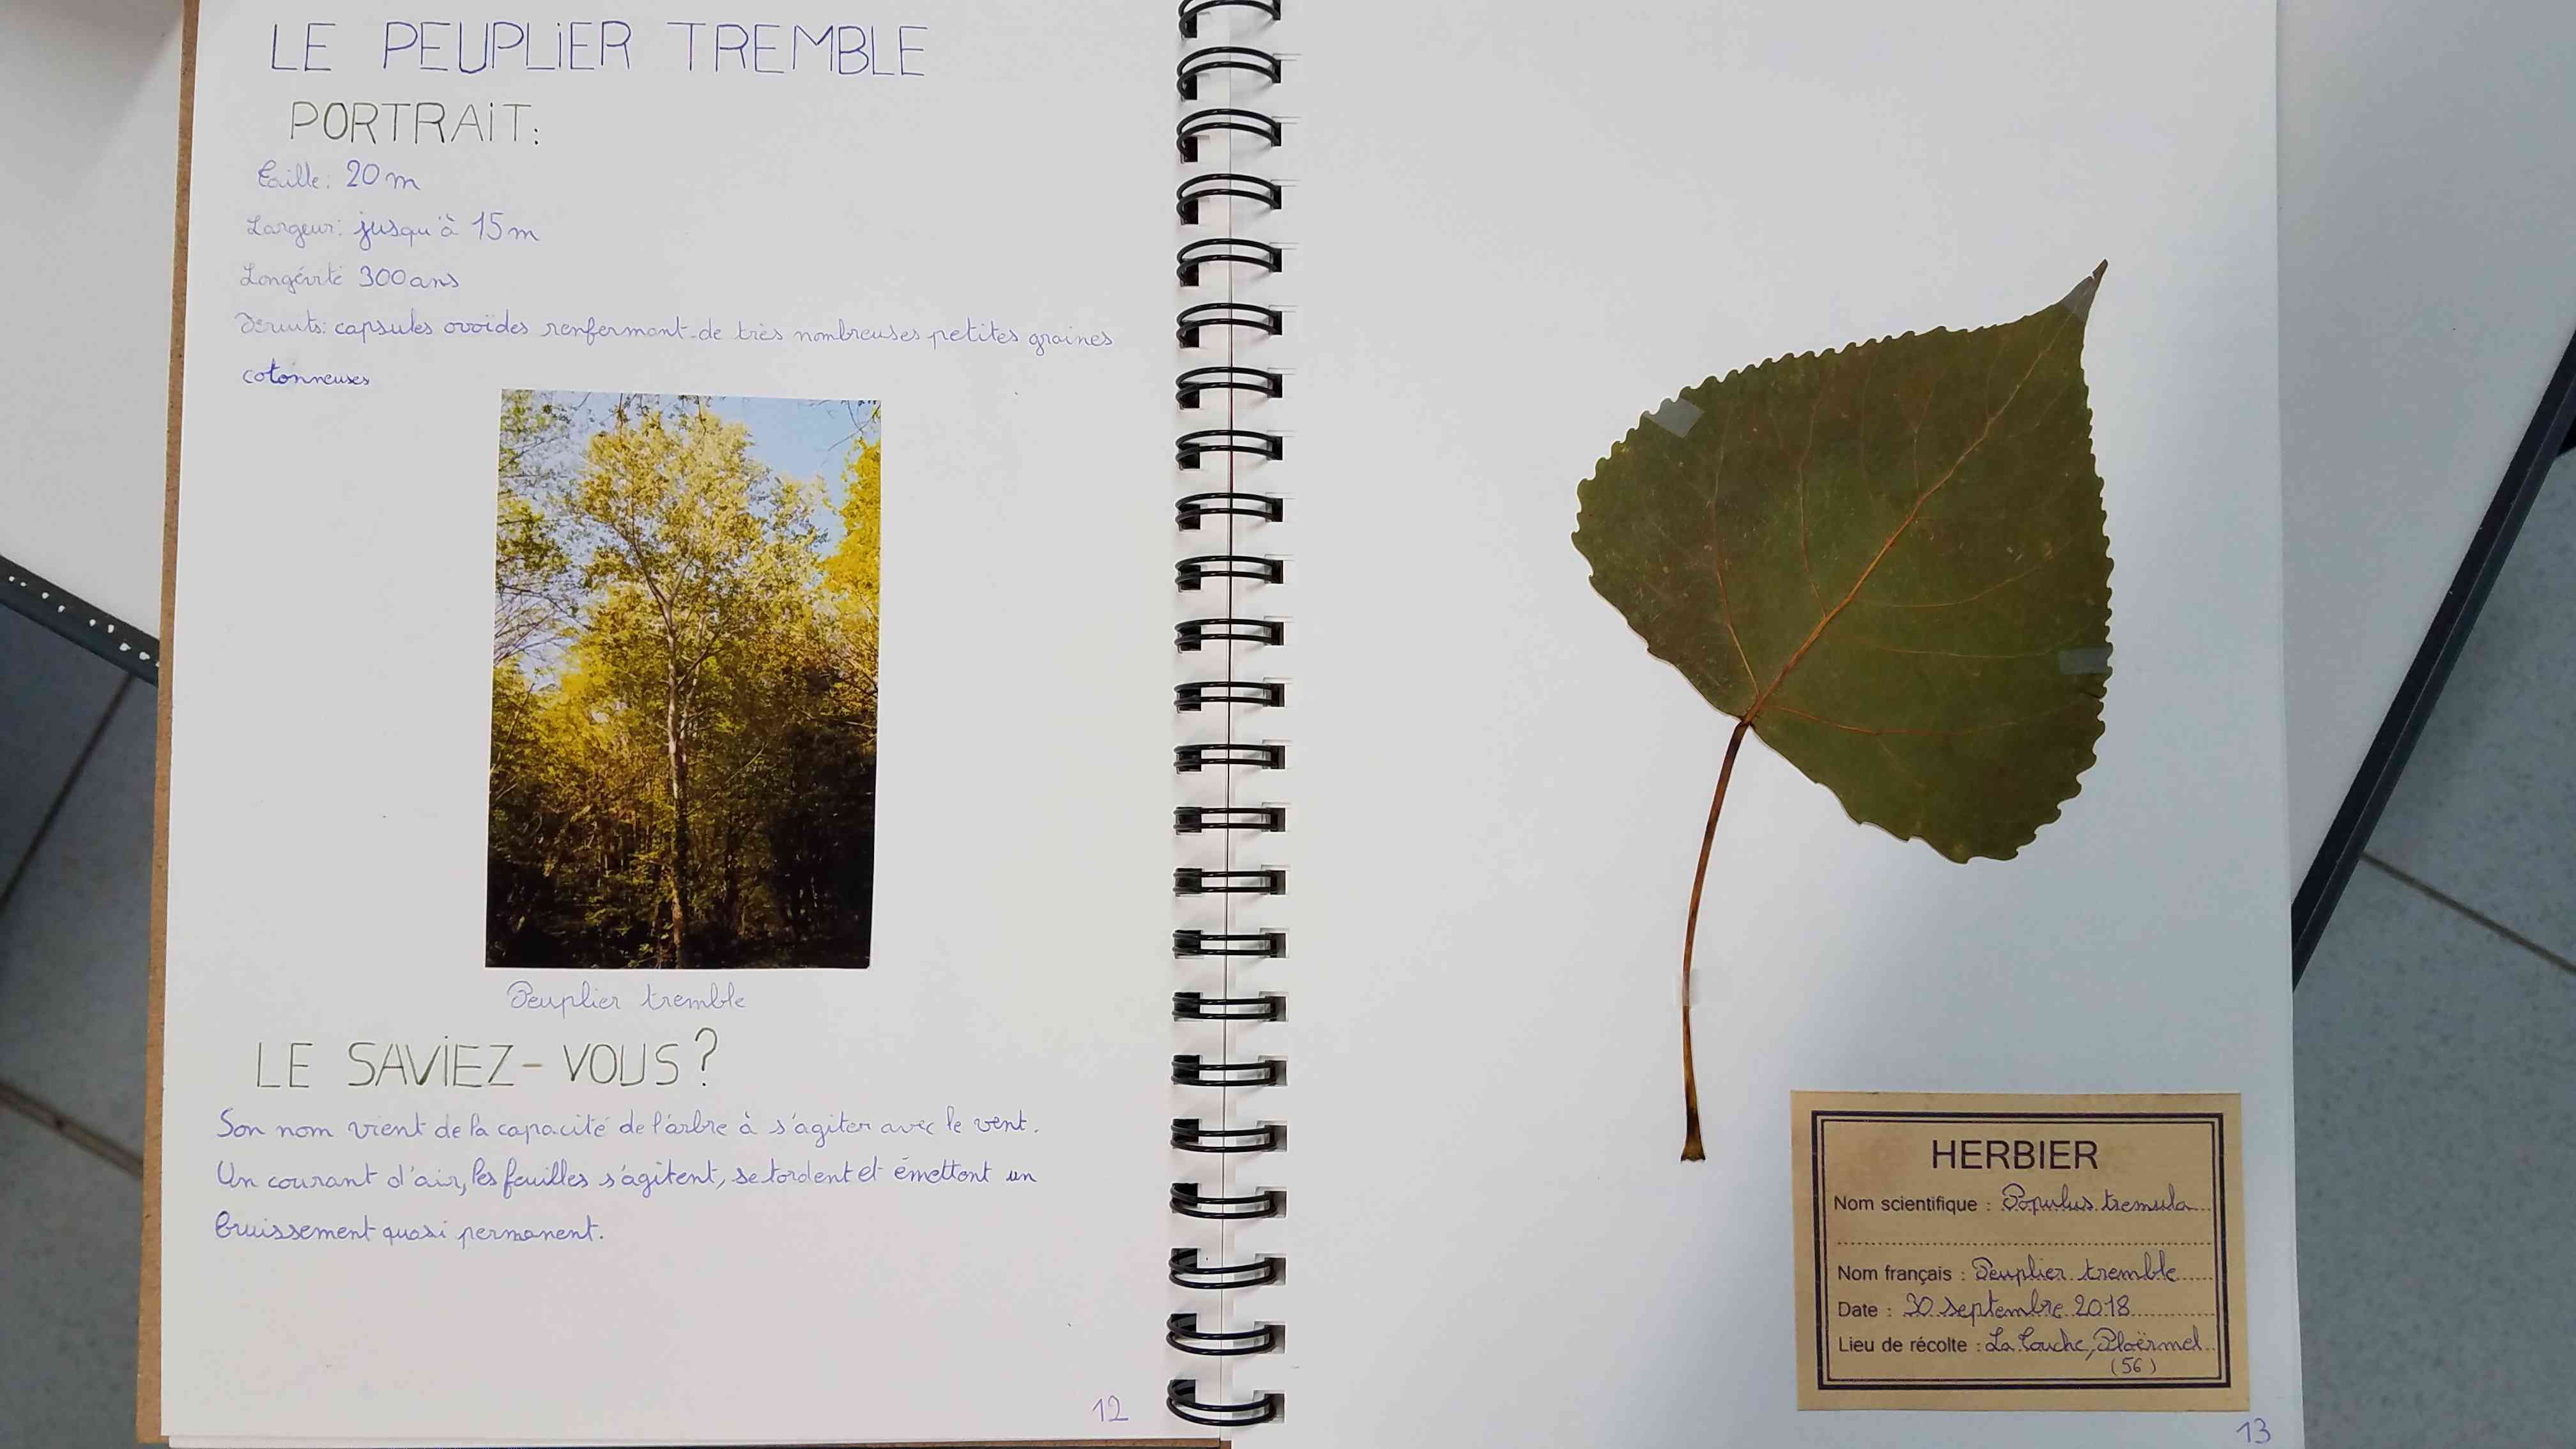 LE PEUPLiER TREMBLE
PORTRAiT:
Taille: 20 m
Largeur: jusqu'à 15 m
Longévité 300 ans
Fruits: capsules ovoïdes renfermant de très nombreuses petites graines
cotonneuses
Peuplier tremble
LE SAViEZ-VOUS?
Son nom vient de la capacité de l'arbre à s'agiter avec le vent.
Un courant d'air, les feuilles s'agitent, se tordent et émettent un
bruissement quasi permanent.
12
HERBIER
Nom scientifique : Populus tremula
Nom français : Peuplier tremble
Date : 30 septembre 2018
Lieu de récolte : La Touche, Ploërmel
(56)
13